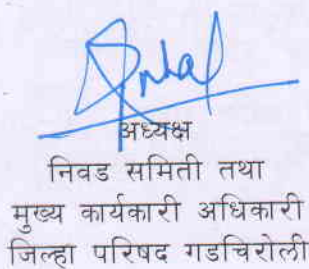 अध्यक्ष
निवड समिती तथा
मुख्य कार्यकारी अधिकारी
जिल्हा परिषद गडचिरोली